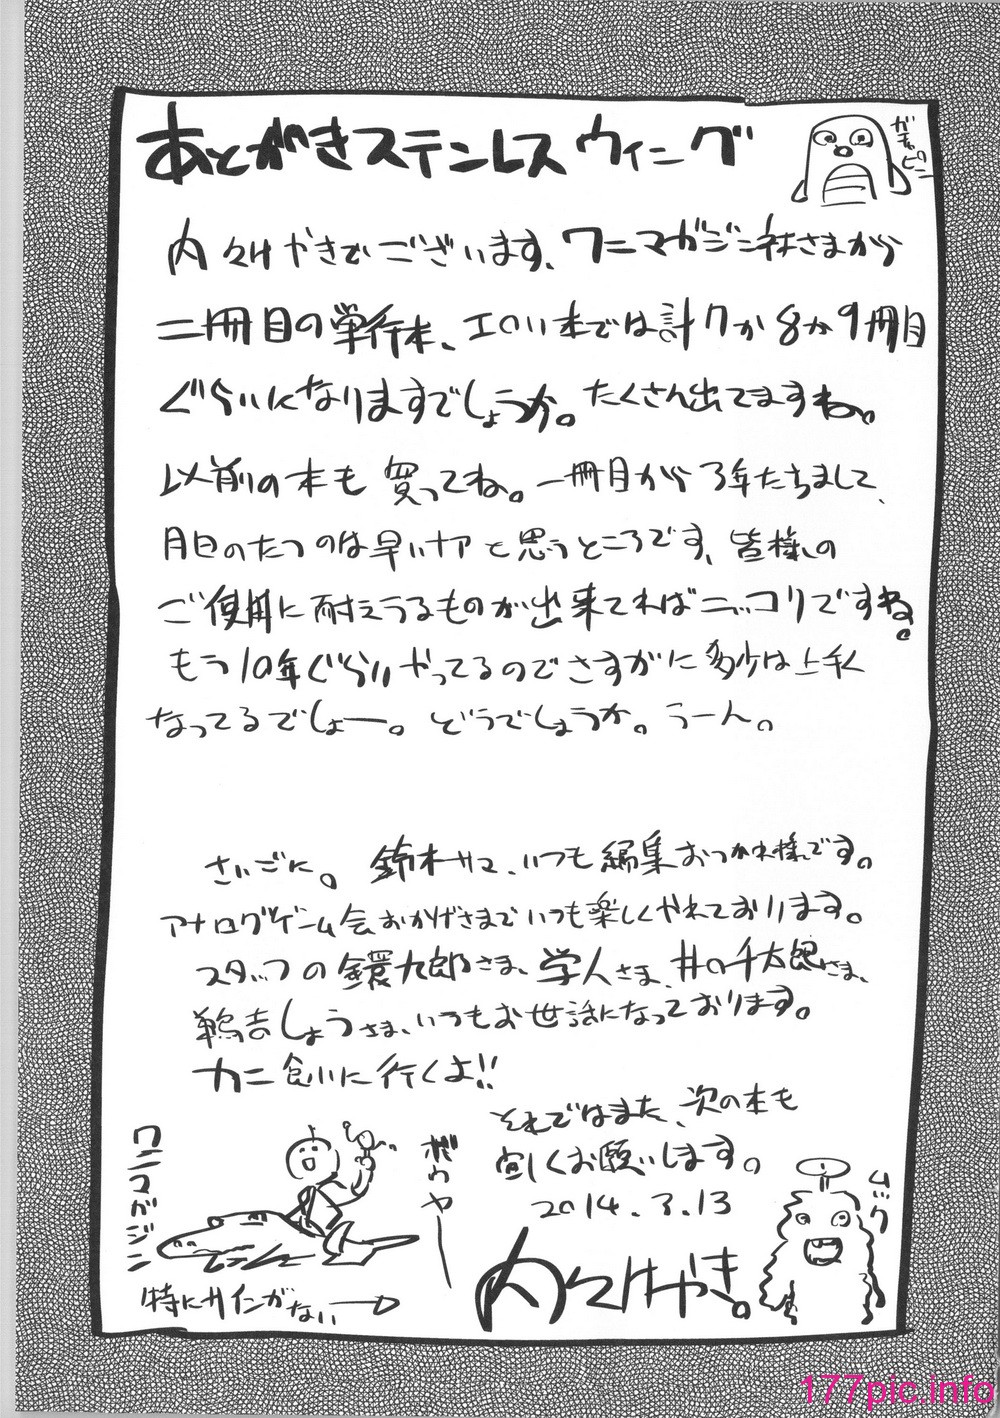 あとがきステンレスウィニーグ
ガチャピン
内々けやきでございます、ワニマガジン社さまから
二冊目の単行本、エロい本では計7か8か9冊目
ぐらいになりますでしょうか。たくさん出てますね。
以前の本も買ってね。一冊目から3年たちまして、
月日のたつのは早いナァと思うところです、皆様の
ご使用に耐えうるものが出来てればニッコリですね。
もう10年ぐらいやってるのでさすがに多少は上手く
なってるでしょー。どうでしょうか。うーん。
さいごに。鈴木サマ、いつも編集おつかれ様です。
アナログゲーム会おかげさまでいつも楽しくやれております。
スタッフの鐶九郎さま、学人さま、井の千太郎さま、
鶉吉しょうさま、いつもお世話になっております。
カニ食いに行くよ!!
それではまた、次の本も
宜しくお願いします。
2014.3.13
内々けやき。
ワニマガジン
ボウヤー
ムック
特にサインがない
177pic.info